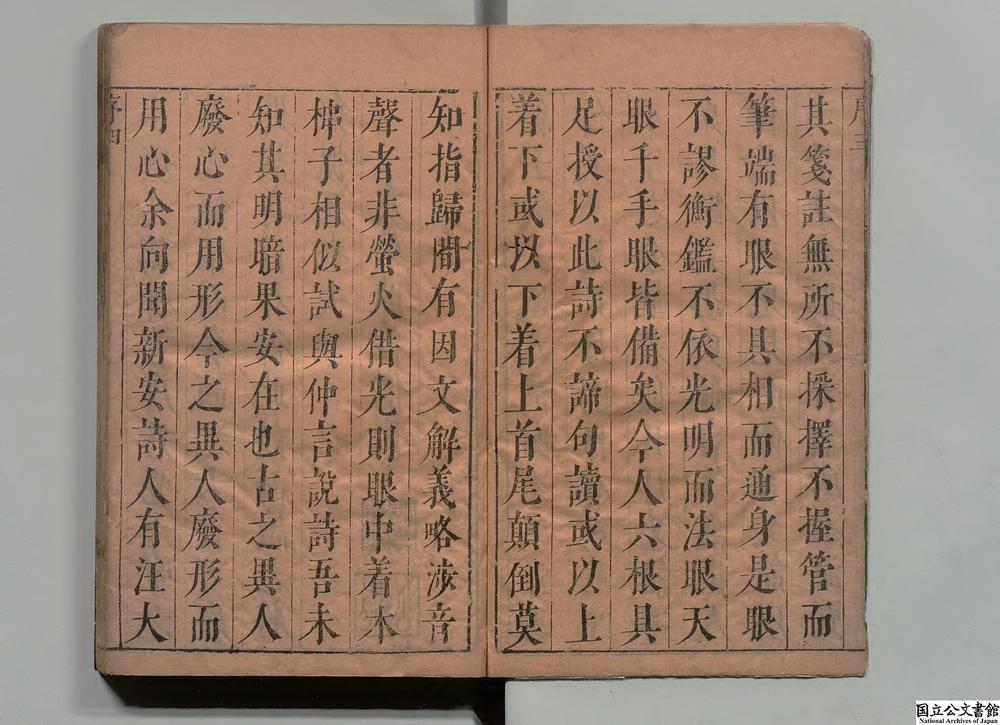 其箋註無所不採擇不握管而
筆端有眼不具相而通身是眼
不謬衡鑑不依光明而法眼天
眼千手眼皆備矣今人六根具
足授以此詩不諦句讀或以上
着下或以下着上首尾顛倒莫
知指歸間有因文解義略涉音
聲者非螢火借光則眼中着木
椑子相似試與仲言說詩吾未
知其明暗果安在也古之異人
廢心而用形今之異人廢形而
用心余向聞新安詩人有汪大
序四
国立公文書館
National Archives of Japan